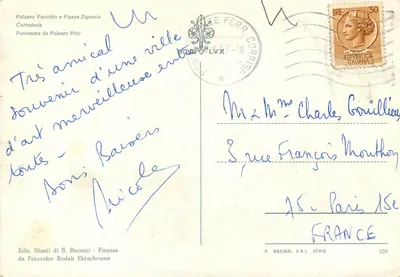 Palazzo Vecchio e Piazza Signoria
Cattedrale
Panorama da Palazzo Pitti
Très amical
souvenir d'une ville
d'art merveilleuse entre
toutes -
Bons Baisers
Nicole
LVX
30
ITALIANE
M & Mme Charles
3, rue François Mouthon
75 - Paris 15e
FRANCE
Ediz. Giusti di S. Becocci - Firenze
da Fotocolor Kodak Ektachrome
509